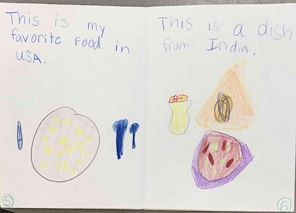 This is my
favorite Food in
USA.
This is a dish
from India.
5
6